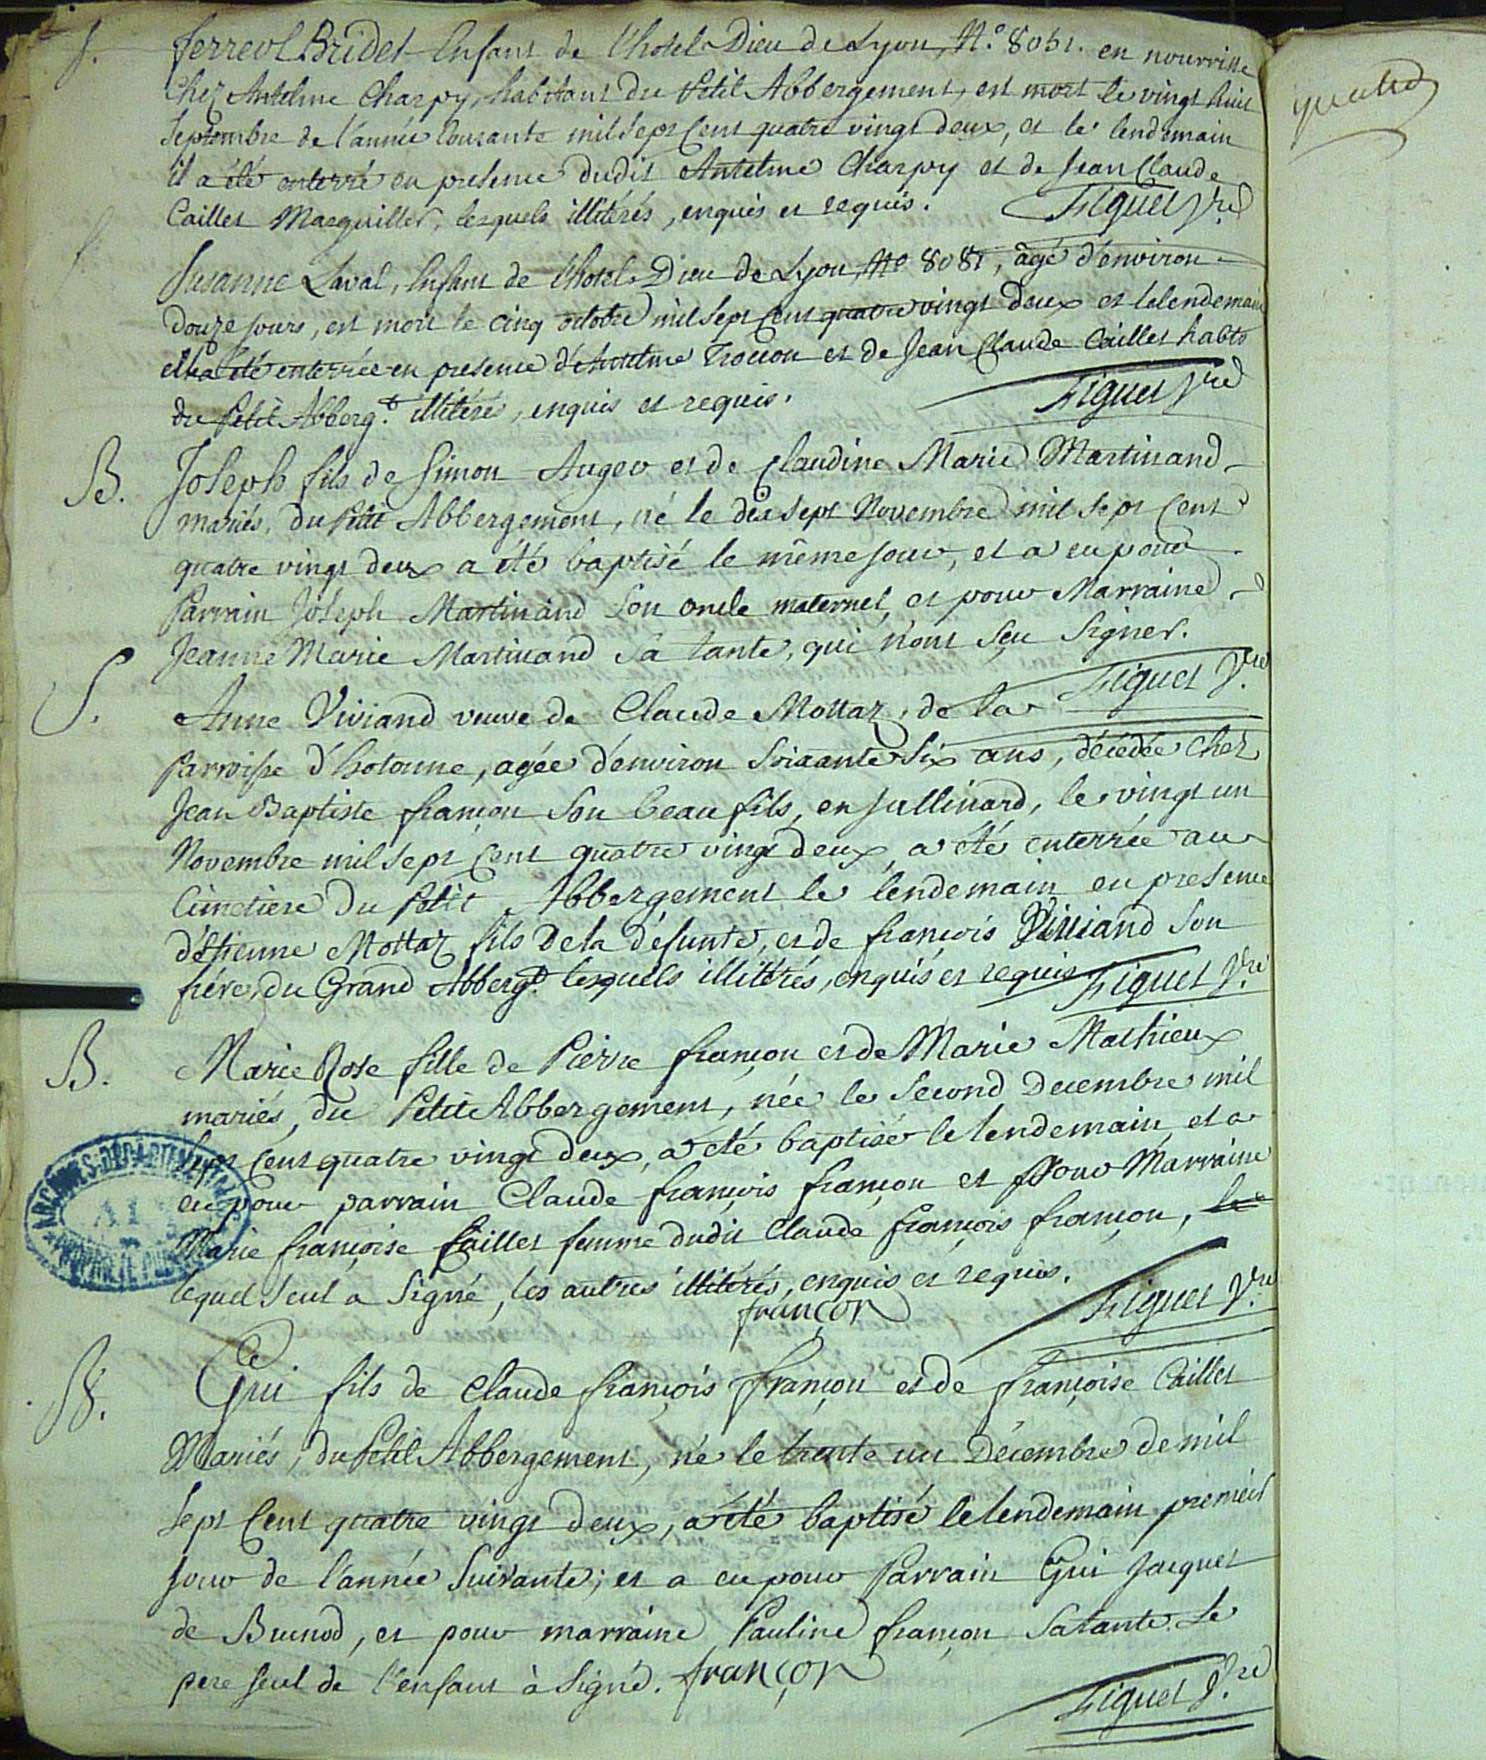 S. ferreol Bridet Enfant de l'hotel-Dieu de Lyon, N.° 8051. en nourrisse
chez Antelme Charpy, habitant du Petit Abbergement, est mort le vingt huit
Septembre de l'année Courante mil sept Cent quatre vingt deux, et le lendemain
il a été enterré en presence dudit Antelme Charpy et de Jean Claude
Caillet Marguiller, lesquels illiterés, enquis et requis. Figuet V.re
S. Susanne Laval, Enfant de l'hotel-Dieu de Lyon N.° 8081, agé d'environ
douze jours, est mort le cinq octobre mil sept Cent quatre vingt deux et le lendemain
elle a été enterrée en presence d'Antelme Trocon et de Jean Claude Caillet habts
du Petit Abberg.t illiterés, enquis et requis. Figuet V.re
B. Joseph fils de Simon Auger et de Claudine Marie Martinand
mariés, du Petit Abbergement, né le dix sept Novembre mil sept Cent
quatre vingt deux a été baptisé le même jour, et a eu pour
Parrain Joseph Martinand son oncle maternel, et pour Marraine
Jeanne Marie Martinand sa tante, qui n'ont sçu signer.
Figuet V.re
S. Anne Viviand veuve de Claude Mottaz, de la
Parroisse d'hotonne, agée d'environ soixante six ans, décédée chez
Jean Baptiste françon son beau fils, en Jullinard, le vingt un
Novembre mil sept Cent quatre vingt deux, a été enterrée au
Cimetière du Petit Abbergement le lendemain en presence
d'Etienne Mottaz fils de la défunte, et de françois Viviand son
frére, du Grand Abberg.t lesquels illitérés, enquis et requis Figuet V.re
B. Marie Rose fille de Pierre françon et de Marie Mathieux
mariés, du Petit Abbergement, née le second Decembre mil
sept Cent quatre vingt deux, a été baptisée le lendemain, et a
eu pour parrain Claude françois françon et pour Marraine
Marie françoise Caillet femme dudit Claude françois françon, le
lequel seul a signé, les autres illitérés, enquis et requis.
françon Figuet V.re
B. Gui fils de Claude françois françon et de françoise Caillet
Mariés, du Petit Abbergement, né le trente un Décembre de mil
sept Cent quatre vingt deux, a été baptisé le lendemain premier
jour de l'année suivante; et a eu pour Parrain Gui Jacquet
de Buenod, et pour marraine Pauline françon sa tante. Le
pere seul de l'enfant à signé. françon
Figuet V.re
quatre
ARCHIVES DÉPARTEMENTALES
AIN